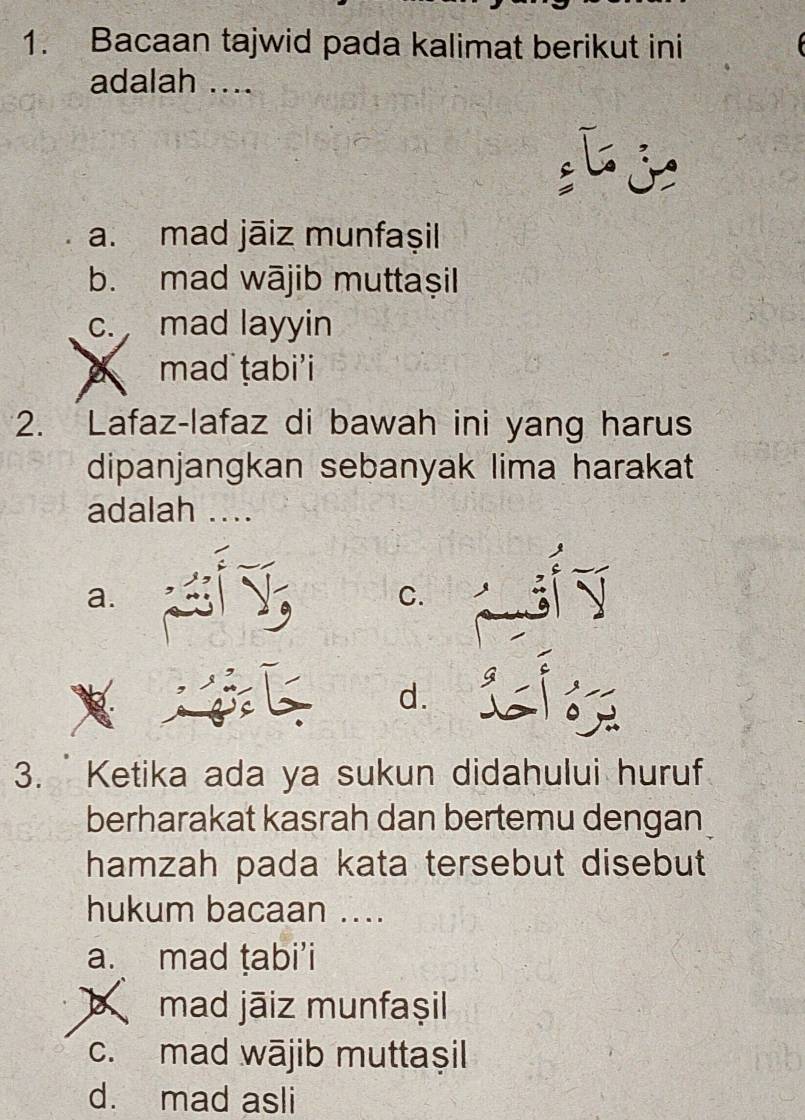 1. Bacaan tajwid pada kalimat berikut ini
adalah ....
مِنْ مَآءٍ
a. mad jāiz munfaṣil
b. mad wājib muttaṣil
c. mad layyin
d. mad ṭabi'i
2. Lafaz-lafaz di bawah ini yang harus
dipanjangkan sebanyak lima harakat
adalah ....
a. وَلَآ أَنْتُمْ c. لَآ أُقْسِمُ
b. جَآءَتْهُمْ d. يَرَهُ أَحَدٌ
3. Ketika ada ya sukun didahului huruf
berharakat kasrah dan bertemu dengan
hamzah pada kata tersebut disebut
hukum bacaan ....
a. mad ṭabi'i
b. mad jāiz munfaṣil
c. mad wājib muttaṣil
d. mad asli